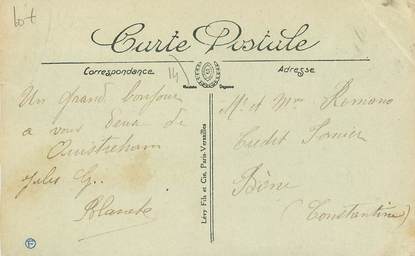 lot
Carte Postale
14
Correspondance
Adresse
Un grand bonjour
a vous deux de
Ouistreham
Jules G..
Blanche
Lévy Fils et Cie, Paris-Versailles
Mr et Mme Romano
Credit Foncier
Bône
(Constantine)